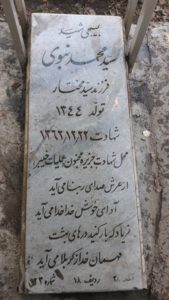 بسیجی شهید
سید محمد نبوی
فرزند سید مختار
تولد ۱۳۴۴
شهادت ۱۳۶۲/۱۲/۲۲
محل شهادت جزیره مجنون عملیات خیبر
از عرش صدای ربنا می آید
آوای خوش خدا خدا می آید
فریاد که باز کنید درهای بهشت
مهمان خدا ز کربلا می آید
ردیف ۱۸
شماره